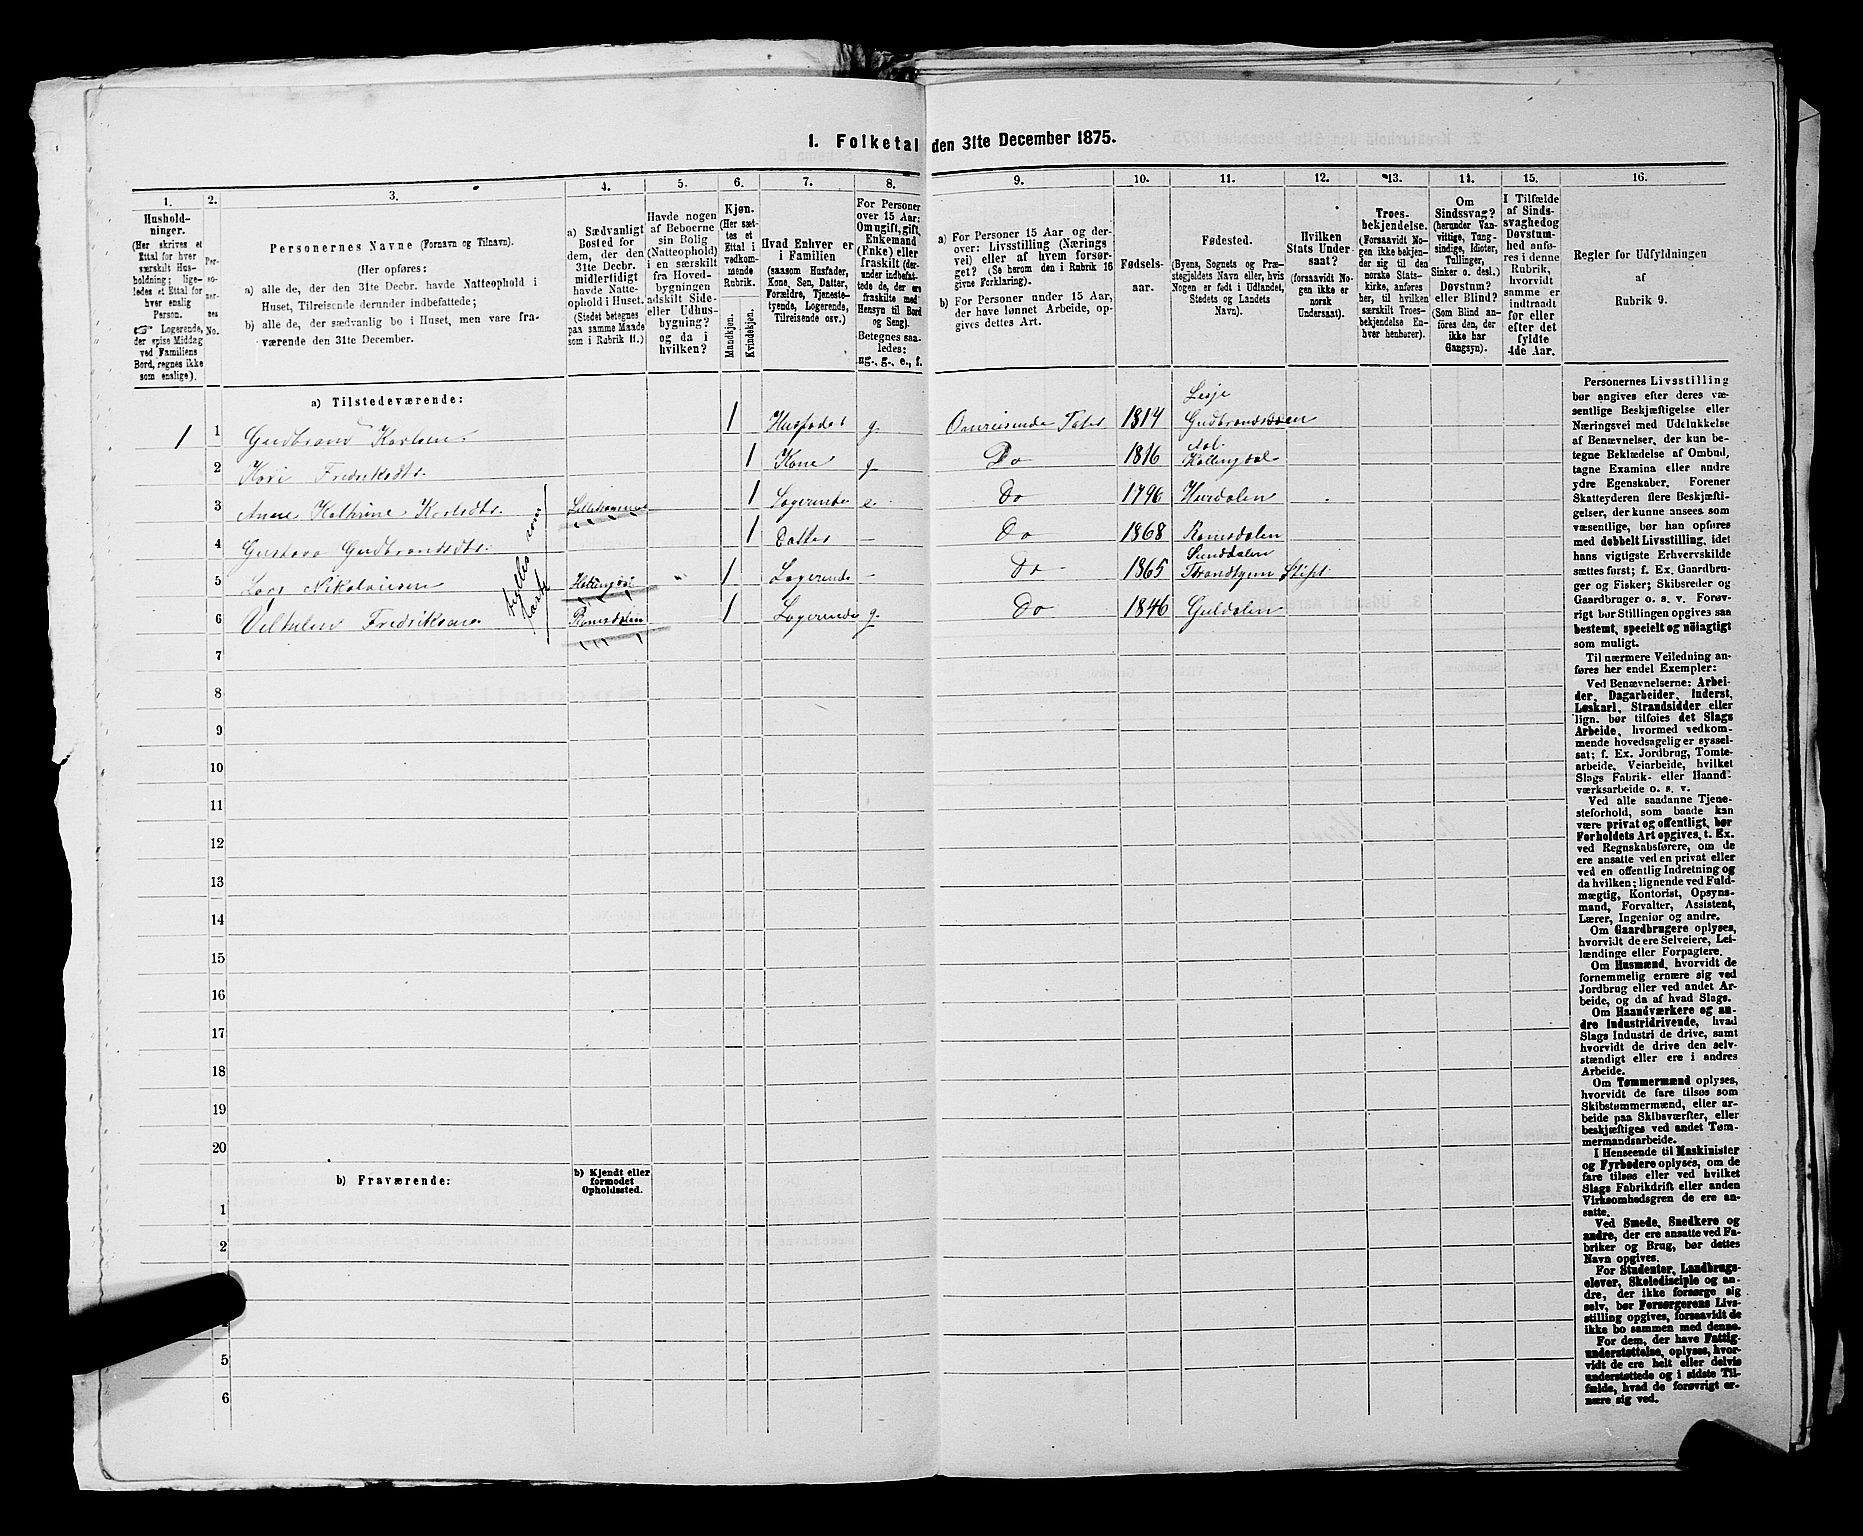 1. Folketal den 31te December 1875.
1.
2.
3.
4.
5.
6.
7.
8.
9.
10.
11.
12.
13.
14.
15.
16.
Hushold-
ninger.
(Her skrives et
Ettal for hver
særskilt Hus-
holdning; lige-
ledes et Ettal for
hver enslig
Person.
☞ Logerende,
der spise Middag
ved Familiens
Bord, regnes ikke
som enslige).
Per-
so-
ner-
nes
No.
Personernes Navne (Fornavn og Tilnavn).
(Her opføres:
a) alle de, der den 31te Decbr. havde Natteophold i
Huset, Tilreisende derunder indbefattede;
b) alle de, der sædvanlig bo i Huset, men vare fra-
værende den 31te December.
a) Sædvanligt
Bosted for
dem, der den
31te Decbr.
midlertidigt
havde Natte-
ophold i Huset.
(Stedet betegnes
paa samme Maade
som i Rubrik 11.)
Havde nogen
af Beboerne
sin Bolig
(Natteophold)
i en særskilt
fra Hoved-
bygningen
adskilt Side-
eller Udhus-
bygning?
og da i
hvilken?
Kjøn.
(Her sæt-
tes et
Ettal i
vedkom-
mende
Rubrik.
Mandkjøn.
Kvindekjøn.
Hvad Enhver er
i Familien
(saasom Husfader,
Kone, Søn, Datter,
Forældre, Tjeneste-
tyende, Logerende,
Tilreisende osv.)
For Personer
over 15 Aar:
Om ugift, gift,
Enkemand
(Enke) eller
fraskilt (der-
under indbefat-
tede de, der ere
fraskilte med
Hensyn til Bord
og Seng).
Betegnes saa-
ledes:
ug., g., e., f.
a) For Personer 15 Aar og der-
over: Livsstilling (Nærings
vei) eller af hvem forsør-
get? (Se herom den i Rubrik 16
givne Forklaring).
b) For Personer under 15 Aar,
der have lønnet Arbeide, op-
gives dettes Art.
Fødsels-
aar.
Fødested.
(Byens, Sognets og Præ-
stegjeldets Navn eller, hvis
Nogen er født i Udlandet,
Stedets og Landets
Navn).
Hvilken
Stats Under-
saat?
(forsaavidt No-
gen ikke er
norsk
Undersaat).
Troes-
bekjendelse.
(Forsaavidt Nogen
ikke bekjen-
der sig til den
norske Stats-
kirke, anføres
her, til hvilken
særskilt Troes-
bekjendelse En-
hver henhører).
Om
Sindssvag?
(herunder Van-
vittige, Tung-
sindige, Idioter,
Tullinger,
Sinker o. desl.)
Døvstum?
eller Blind?
(Som Blind an-
føres den, der
ikke har
Gangsyn).
I Tilfælde
af Sinds-
svaghed og
Døvstum-
hed anfø-
res i denne
Rubrik,
hvorvidt
samme er
indtraadt
før eller
efter det
fyldte
4de Aar.
Regler for Udfyldningen
af
Rubrik 9.
a) Tilstedeværende:
1 1 Gudbrand Karlsen 1 Husfader g. Omreisende Tater 1814 Lesje
Gudbrandsdalen
2 Kari Fredriksdtr. 1 Kone g. Do 1816 Aal
Hallingdal
3 Anne Kathrine Karlsdtr. Lillehammer 1 Logerende e. Do 1796 Hurdalen
4 Gustava Gudbrandsdtr. 1 Datter — Do 1868 Romsdalen
5 Lars Nikolaisen Hallingdal " 1 Logerende — Do 1865 Sunddalen
Throndhjem Stift
6 Vilhelm Fredriksen Romsdalen 1 Logerende g. Do 1846 Guldalen
7
8
9
10
11
12
13
14
15
16
17
18
19
20
b) Fraværende:
b) Kjendt eller
formodet
Opholdssted.
1
2
5
6
Personernes Livsstilling
bør angives efter deres væ-
sentlige Beskjæftigelse eller
Næringsvei med Udelukkelse
af Benævnelser, der kun be-
tegne Beklædelse af Ombud,
tagne Examina eller andre
ydre Egenskaber. Forener
Skatteyderen flere Beskjæfti-
gelser, der kunne ansees som
væsentlige, bør han opføres
med dobbelt Livsstilling, idet
hans vigtigste Erhvervskilde
sættes først; f. Ex. Gaardbru-
ger og Fisker; Skibsreder og
Gaardbruger o. s. v. Forøv-
rigt bør Stillingen opgives saa
bestemt, specielt og nøiagtigt
som muligt.
Til nærmere Veiledning an-
føres her endel Exempler:
Ved Benævnelserne: Arbei-
der, Dagarbeider, Inderst,
Løskarl, Strandsidder eller
lign. bør tilføies det Slags
Arbeide, hvormed vedkom-
mende hovedsagelig er syssel-
sat; f. Ex. Jordbrug, Tomte-
arbeide, Veiarbeide, hvilket
Slags Fabrik- eller Haand-
værksarbeide o. s. v.
Ved alle saadanne Tjene-
steforhold, som baade kan
være privat og offentligt, bør
Forholdets Art opgives, t. Ex.
ved Regnskabsførere, om de
ere ansatte ved en privat eller
ved en offentlig Indretning og
da hvilken; lignende ved Fuld-
mægtig, Kontorist, Opsyns-
mand, Forvalter, Assistent,
Lærer, Ingeniør og andre.
Om Gaardbrugere oplyses,
hvorvidt de ere Selveiere, Lei-
lændinge eller Forpagtere.
Om Husmænd, hvorvidt de
fornemmelig ernære sig ved
Jordbrug eller ved andet Ar-
beide, og da af hvad Slags.
Om Haandværkere og an-
dre Industridrivende, hvad
Slags Industri de drive, samt
hvorvidt de drive den selv-
stændigt eller ere i andres
Arbeide.
Om Tømmermænd oplyses,
hvorvidt de fare tilsøs som
Skibstømmermænd, eller ar-
beide paa Skibsværfter, eller
beskjæftiges ved andet Tøm-
mermandsarbeide.
I Henseende til Maskinister
og Fyrbødere oplyses, om de
fare tilsøs eller ved hvilket
Slags Fabrikdrift eller anden
Virksomhedsgren de ere an-
satte.
Ved Smede, Snedkere og
andre, der ere ansatte ved Fa-
briker og Brug, bør dettes
Navn opgives.
For Studenter, Landbrugs-
elever, Skoledisciple og an-
dre, der ikke forsørge sig
selv, bør Forsørgerens Livs-
stilling opgives, forsaavidt de
ikke bo sammen med denne.
For dem, der have Fattig-
understøttelse, oplyses, hvor-
vidt de ere helt eller delvis
understøttede og i sidste Til-
fælde, hvad de forøvrigt er-
nære sig ved.